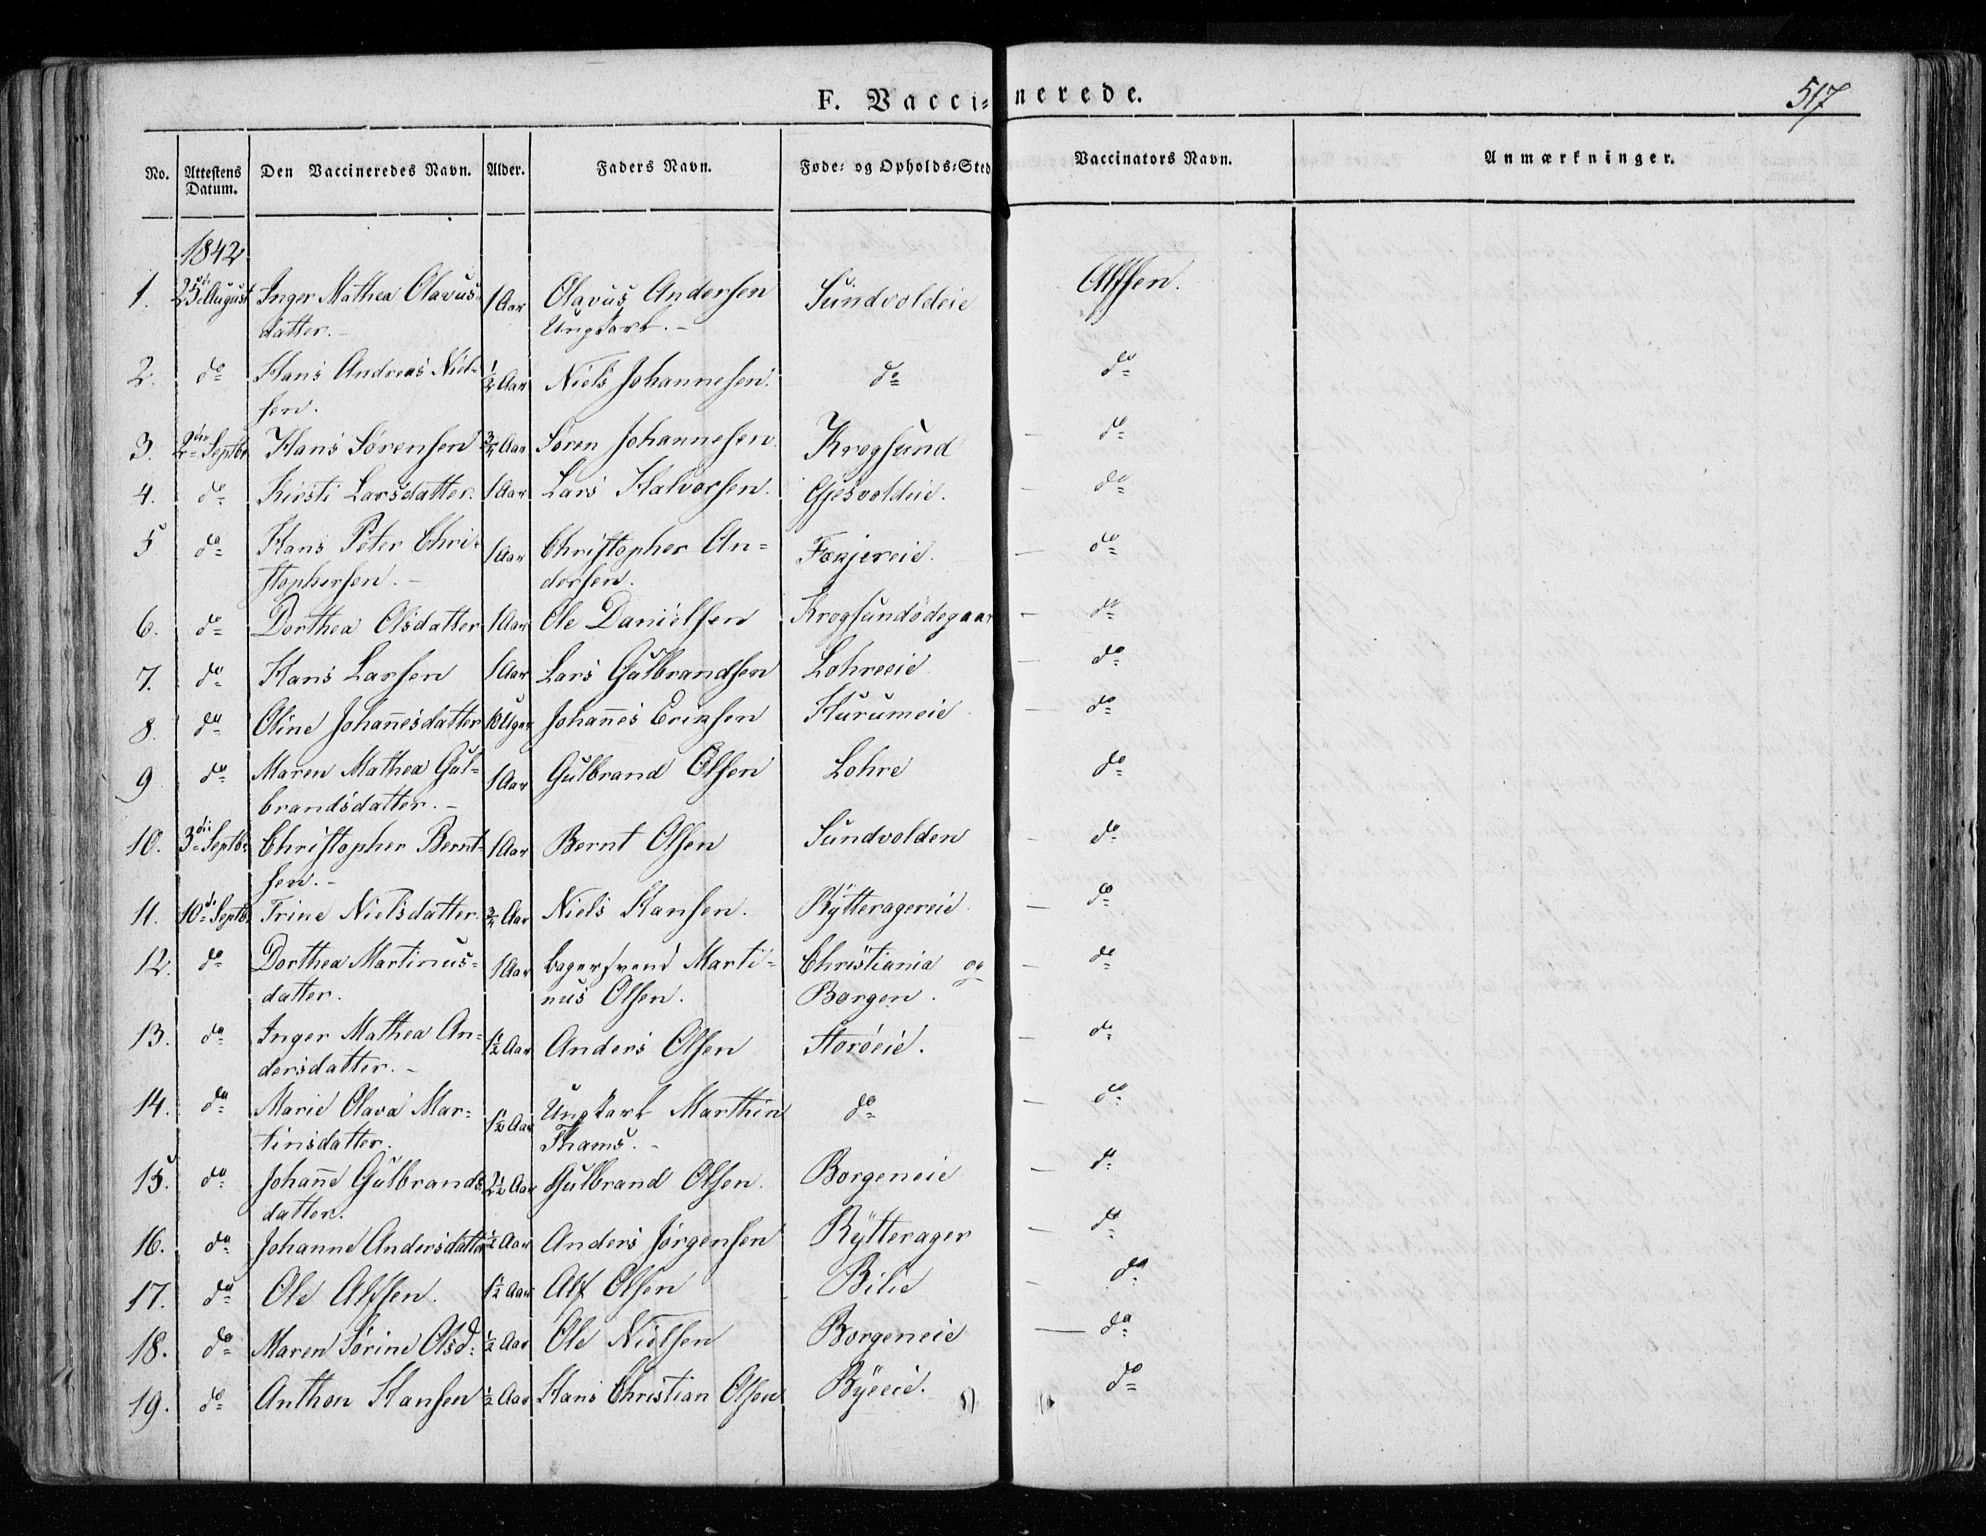 F. Vaccinerede.
517
No. Attestens Datum. Den Vaccineredes Navn. Alder. Faders Navn. Føde- og Opholds-Sted Vaccinators Navn. Anmærkninger.
1842
1. 25de August Inger Mathea Olavus- 1 Aar Olavus Andersen Sundvoldeie Alfsen.
datter.- Ungkarl.-
2. do Hans Andreas Niel- 1/2 Aar Niels Johannesen. do do
sen.
3. 2den Septbr Hans Sørensen 3/4 Aar Søren Johannesen. Krogsund do
4. do Kirsti Larsdatter. 1 Aar Lars Halvorsen. Gjesvoldeie. do
5 do Hans Peter Chri- 1 Aar Christopher An- Fænjereie. do
stophersen.- dersen.
6. do Dorthea Olsdatter 1 Aar Ole Danielsen Krogsundødegaar do
7. do Hans Larsen 1 Aar Lars Gulbrandsen Lohreeie do
8. do Oline Johannesdatter Uger Johannes Ericksen Hurumeie do
9 do Maren Mathea Gul- 1 Aar Gulbrand Olsen Lohre do
brandsdatter.-
10. 3die Septbr Christopher Bernt- 1 Aar Bernt Olsen Sundvolden do
sen.-
11. 10de Septb. Trine Nielsdatter. 3/4 Aar Niels Hansen. Rytteragereie do
12. do Dorthea Martinus- 1 Aar bagersvend Marti- Christiania og do
datter. nus Olsen. Borgen.
13. do Inger Mathea An- 1 1/2 Aar Anders Olsen Storøeie. do
dersdatter.-
14. do Marie Olava Mar- 1 1/2 Aar Ungkarl Marthin do do
tinsdatter. Thams.-
15. do Johanne Gulbrands 2 1/2 Aar Gulbrand Olsen. Borgeneie do
datter.
16. do Johanne Andersdatter 1/2 Aar Anders Jørgensen Rytterager do
17. do Ole Alfsen. 1 1/2 Aar Alf Olsen Bilie do
18. do Maren Sørine Olsd: 1/2 Aar Ole Nielsen Borgeneie do
19. do Anthon Hansen 1/2 Aar Hans Christian Olsen Byeeie. do